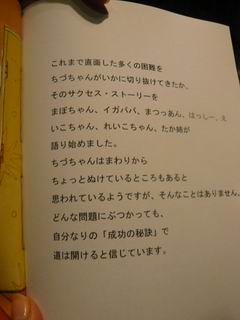 これまで直面した多くの困難を
ちづちゃんがいかに切り抜けてきたか、
そのサクセス・ストーリーを
まぼちゃん、イガパパ、まつっあん、はっしー、え
いこちゃん、れいこちゃん、たか姉が
語り始めました。
ちづちゃんはまわりから
ちょっとぬけているところもあると
思われているようですが、そんなことはありません。
どんな問題にぶつかっても、
自分なりの「成功の秘訣」で
道は開けると信じています。